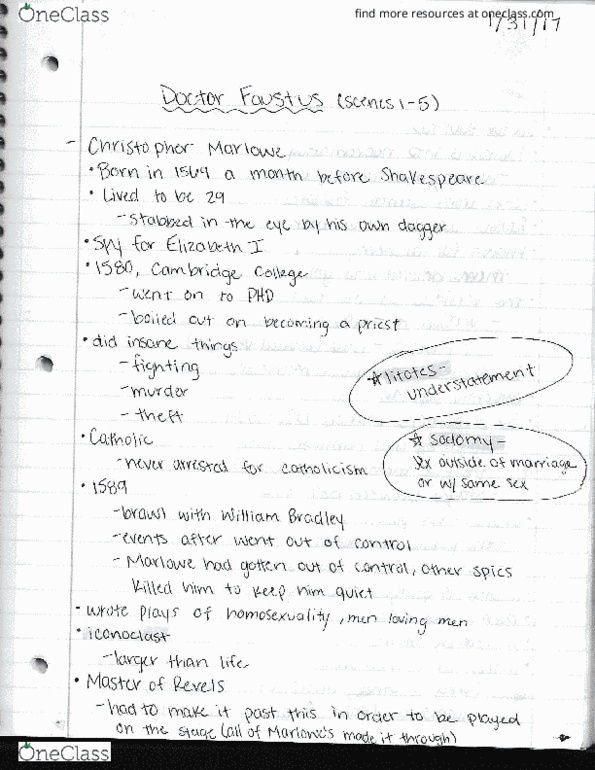 OneClass
find more resources at oneclass.com
1/31/17
Doctor Faustus (scenes 1-5)
- Christopher Marlowe
• Born in 1564 a month before Shakespeare
• Lived to be 29
- stabbed in the eye by his own dagger
• Spy for Elizabeth I
• 1580, Cambridge College
- went on to PHD
- bailed out on becoming a priest
• did insane things
- fighting
- murder
- theft
☆ litotes-
understatement
• Catholic
- never arrested for catholicism
☆ sodomy-
sex outside of marriage
or w/ same sex
• 1589
- brawl with William Bradley
- events after went out of control
- Marlowe had gotten out of control, other spies
killed him to keep him quiet
• wrote plays of homosexuality, men loving men
• iconoclast
- larger than life
• Master of Revels
- had to make it past this in order to be played
on the stage (all of Marlowe's made it through)
OneClass
find more resources at oneclass.com